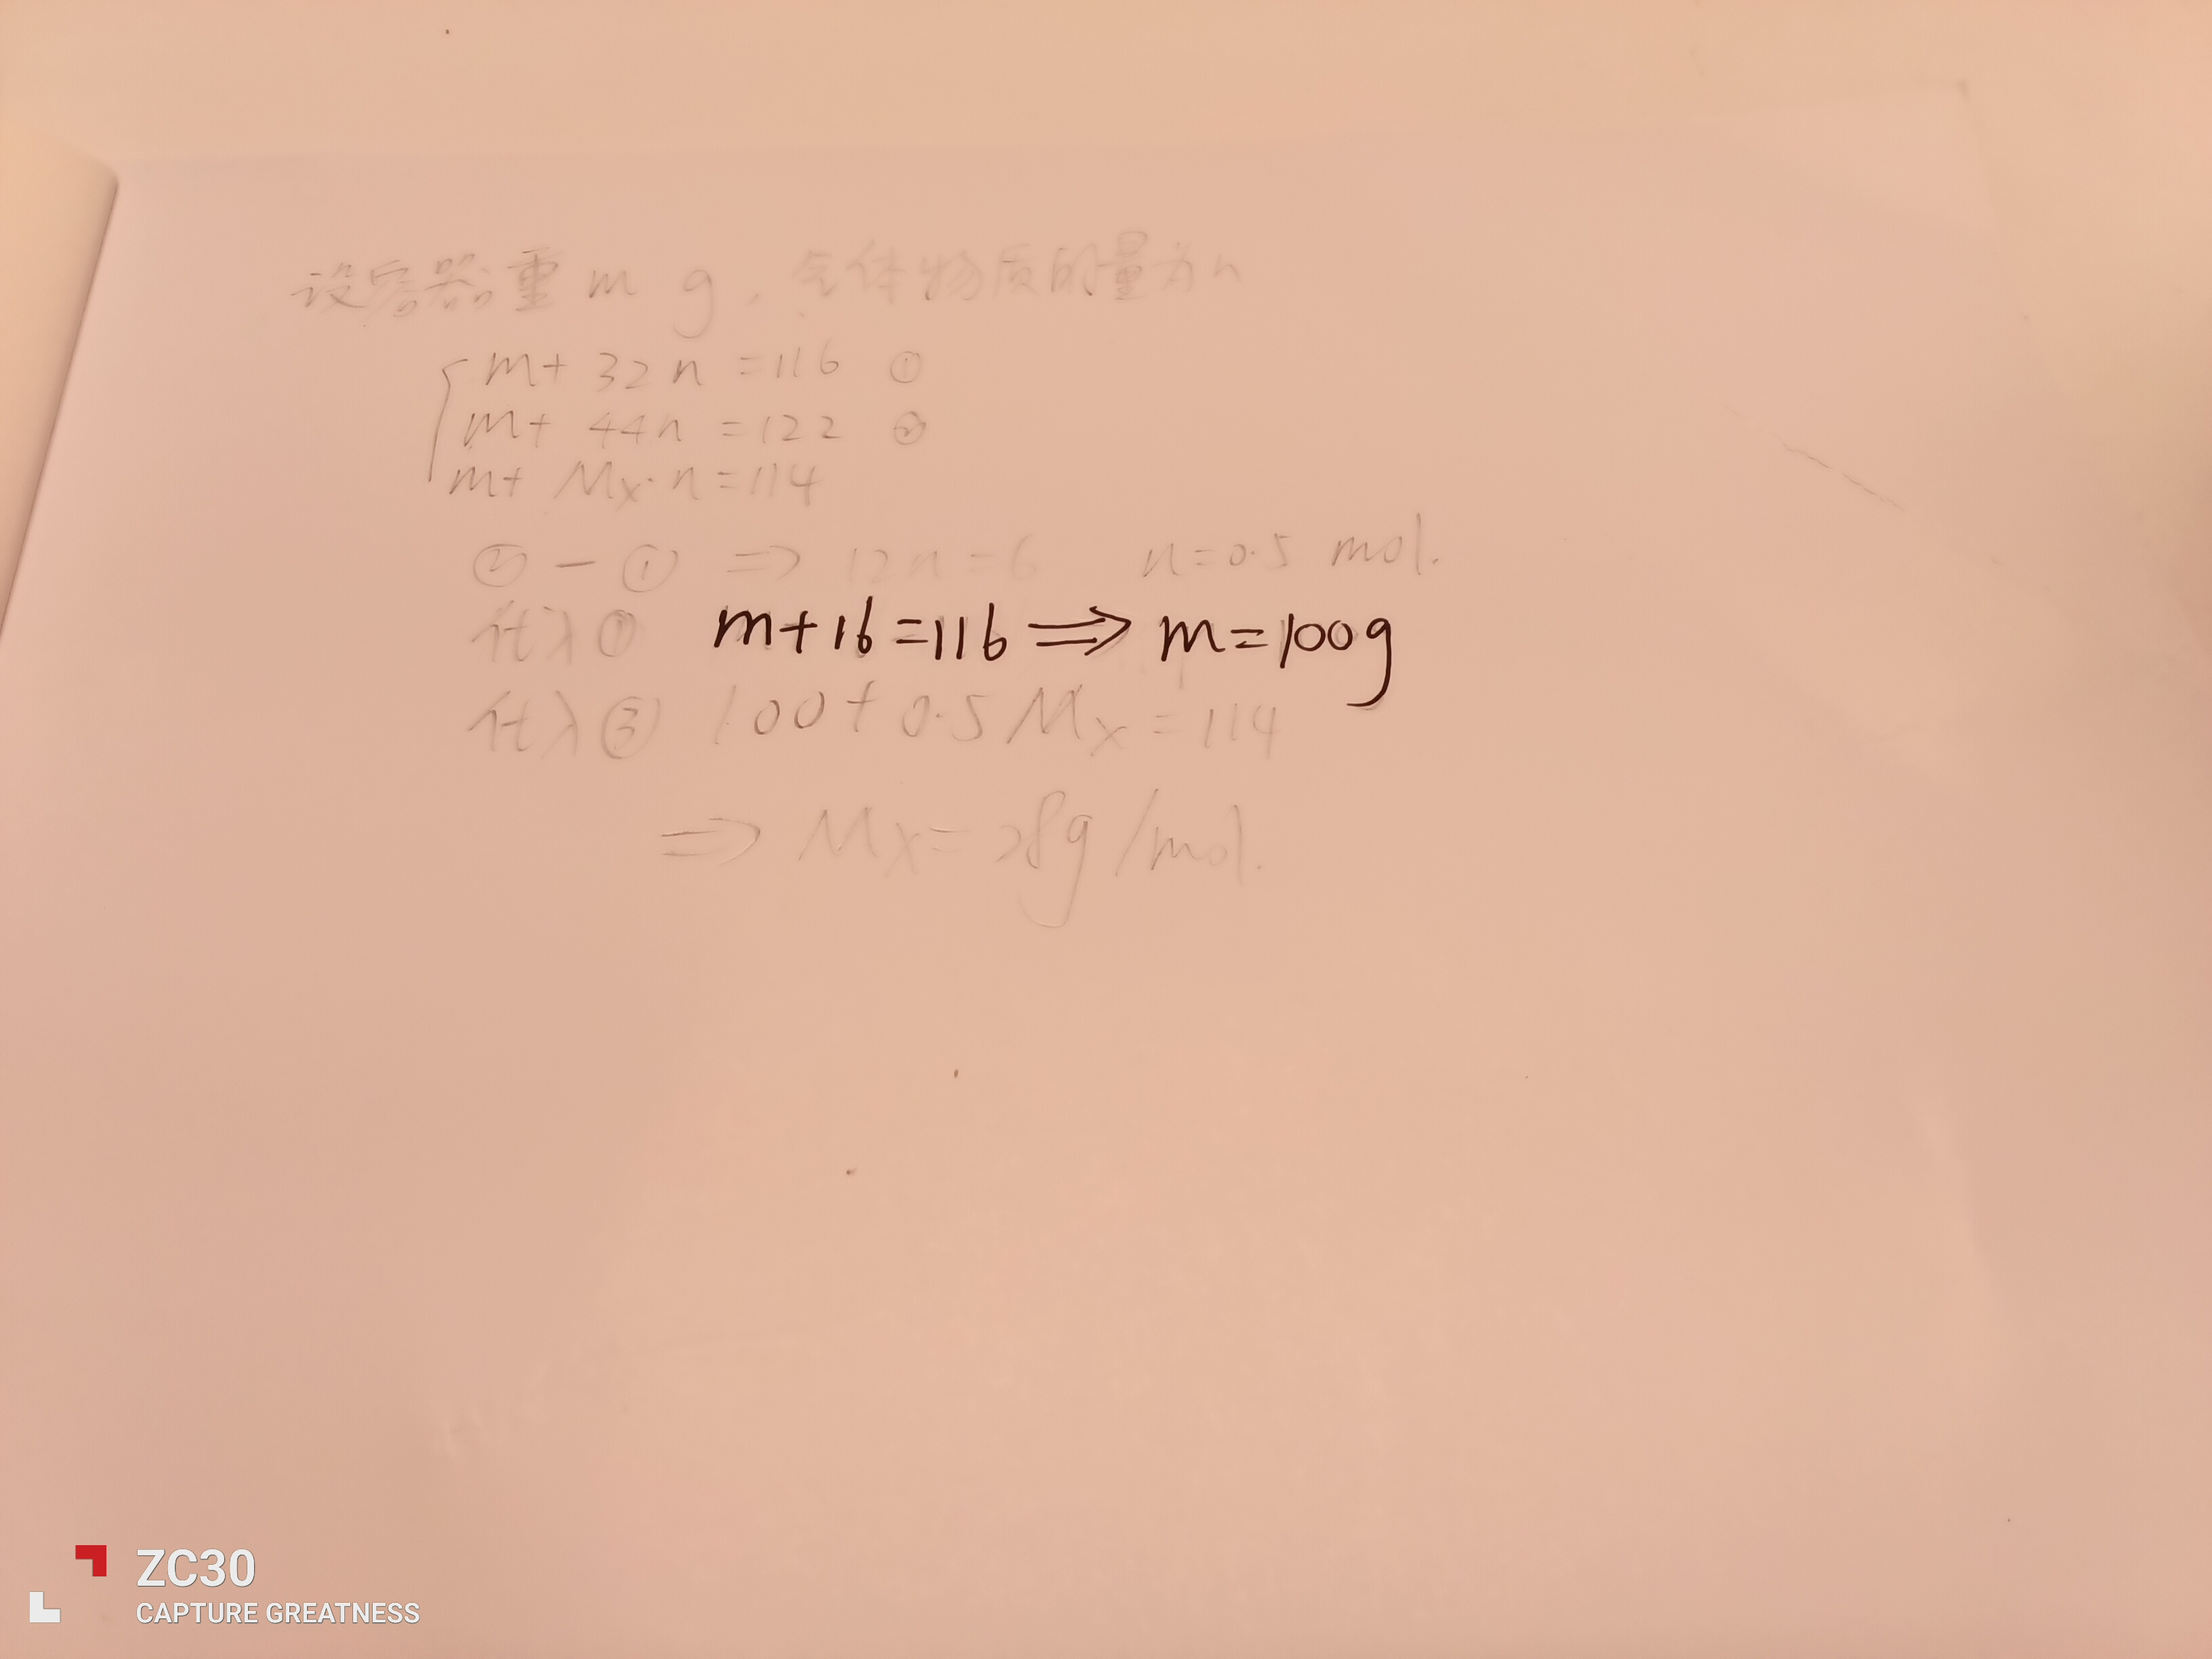 设容器重 m g，气体物质的量为n
m+ 32 n =116 ①
m+ 44n =122 ②
m+ Mx·n=114
②-① => 12n=6 n=0.5 mol.
代入① m+16=116 => m=100g
代入③ 100+0.5Mx=114
=> Mx=28g/mol.
ZC30
CAPTURE GREATNESS